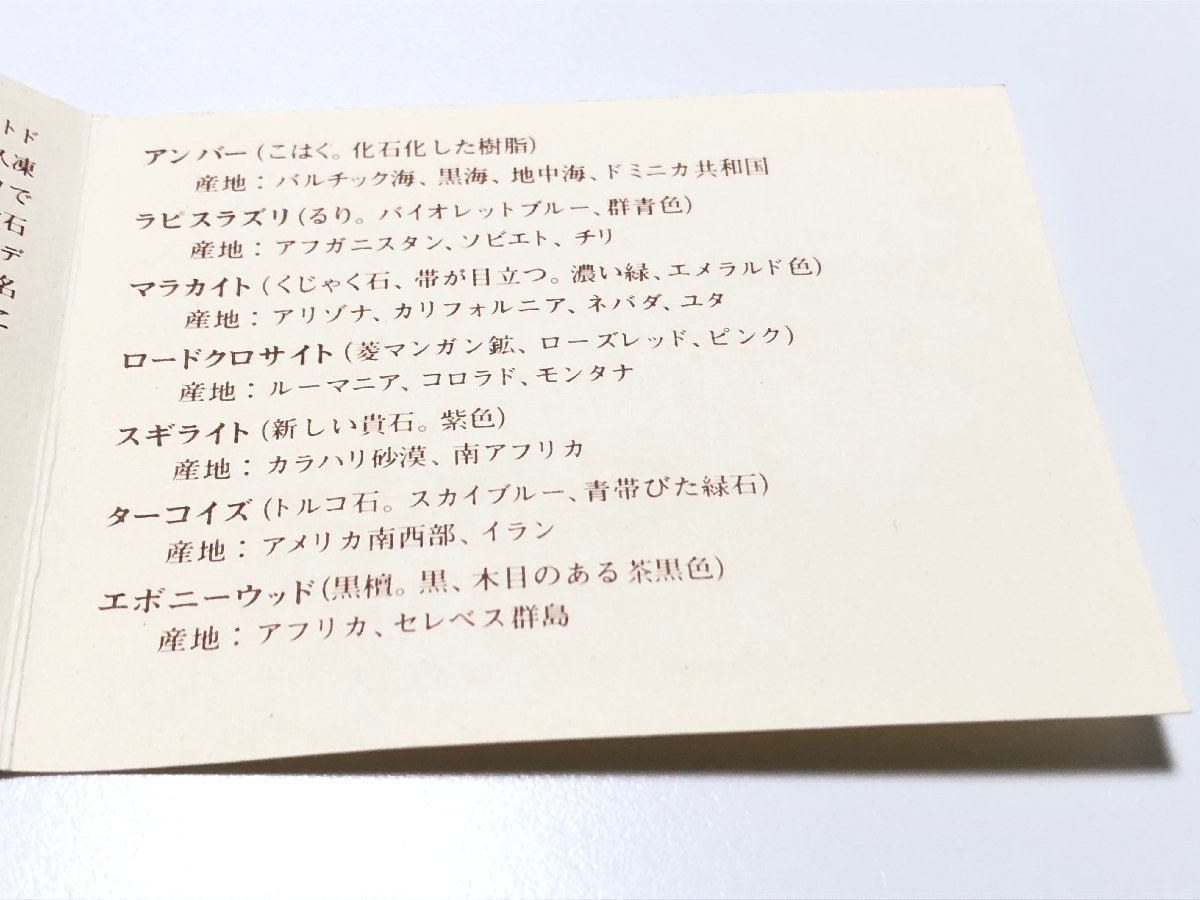 トド
凍
で
石
デ
名
に
アンバー(こはく。化石化した樹脂)
産地：バルチック海、黒海、地中海、ドミニカ共和国
ラピスラズリ(るり。バイオレットブルー、群青色)
産地：アフガニスタン、ソビエト、チリ
マラカイト(くじゃく石、帯が目立つ。濃い緑、エメラルド色)
産地：アリゾナ、カリフォルニア、ネバダ、ユタ
ロードクロサイト(菱マンガン鉱、ローズレッド、ピンク)
産地：ルーマニア、コロラド、モンタナ
スギライト(新しい貴石。紫色)
産地：カラハリ砂漠、南アフリカ
ターコイズ(トルコ石。スカイブルー、青帯びた緑石)
産地：アメリカ南西部、イラン
エボニーウッド(黒檀。黒、木目のある茶黒色)
産地：アフリカ、セレベス群島